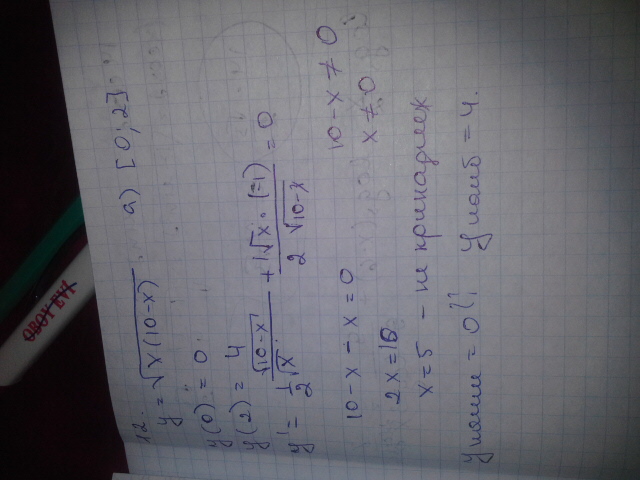 12.
y = √x(10-x)   a) [0; 2]
y(0) = 0.
y(2) = 4
y' = √10-x / 2√x + 1√x · (-1) / 2√10-x = 0
10-x-x=0   10-x≠0
2x=10   x≠0
x=5 - не принадлеж
y наим = 0   y наиб = 4.
OBOY EVY